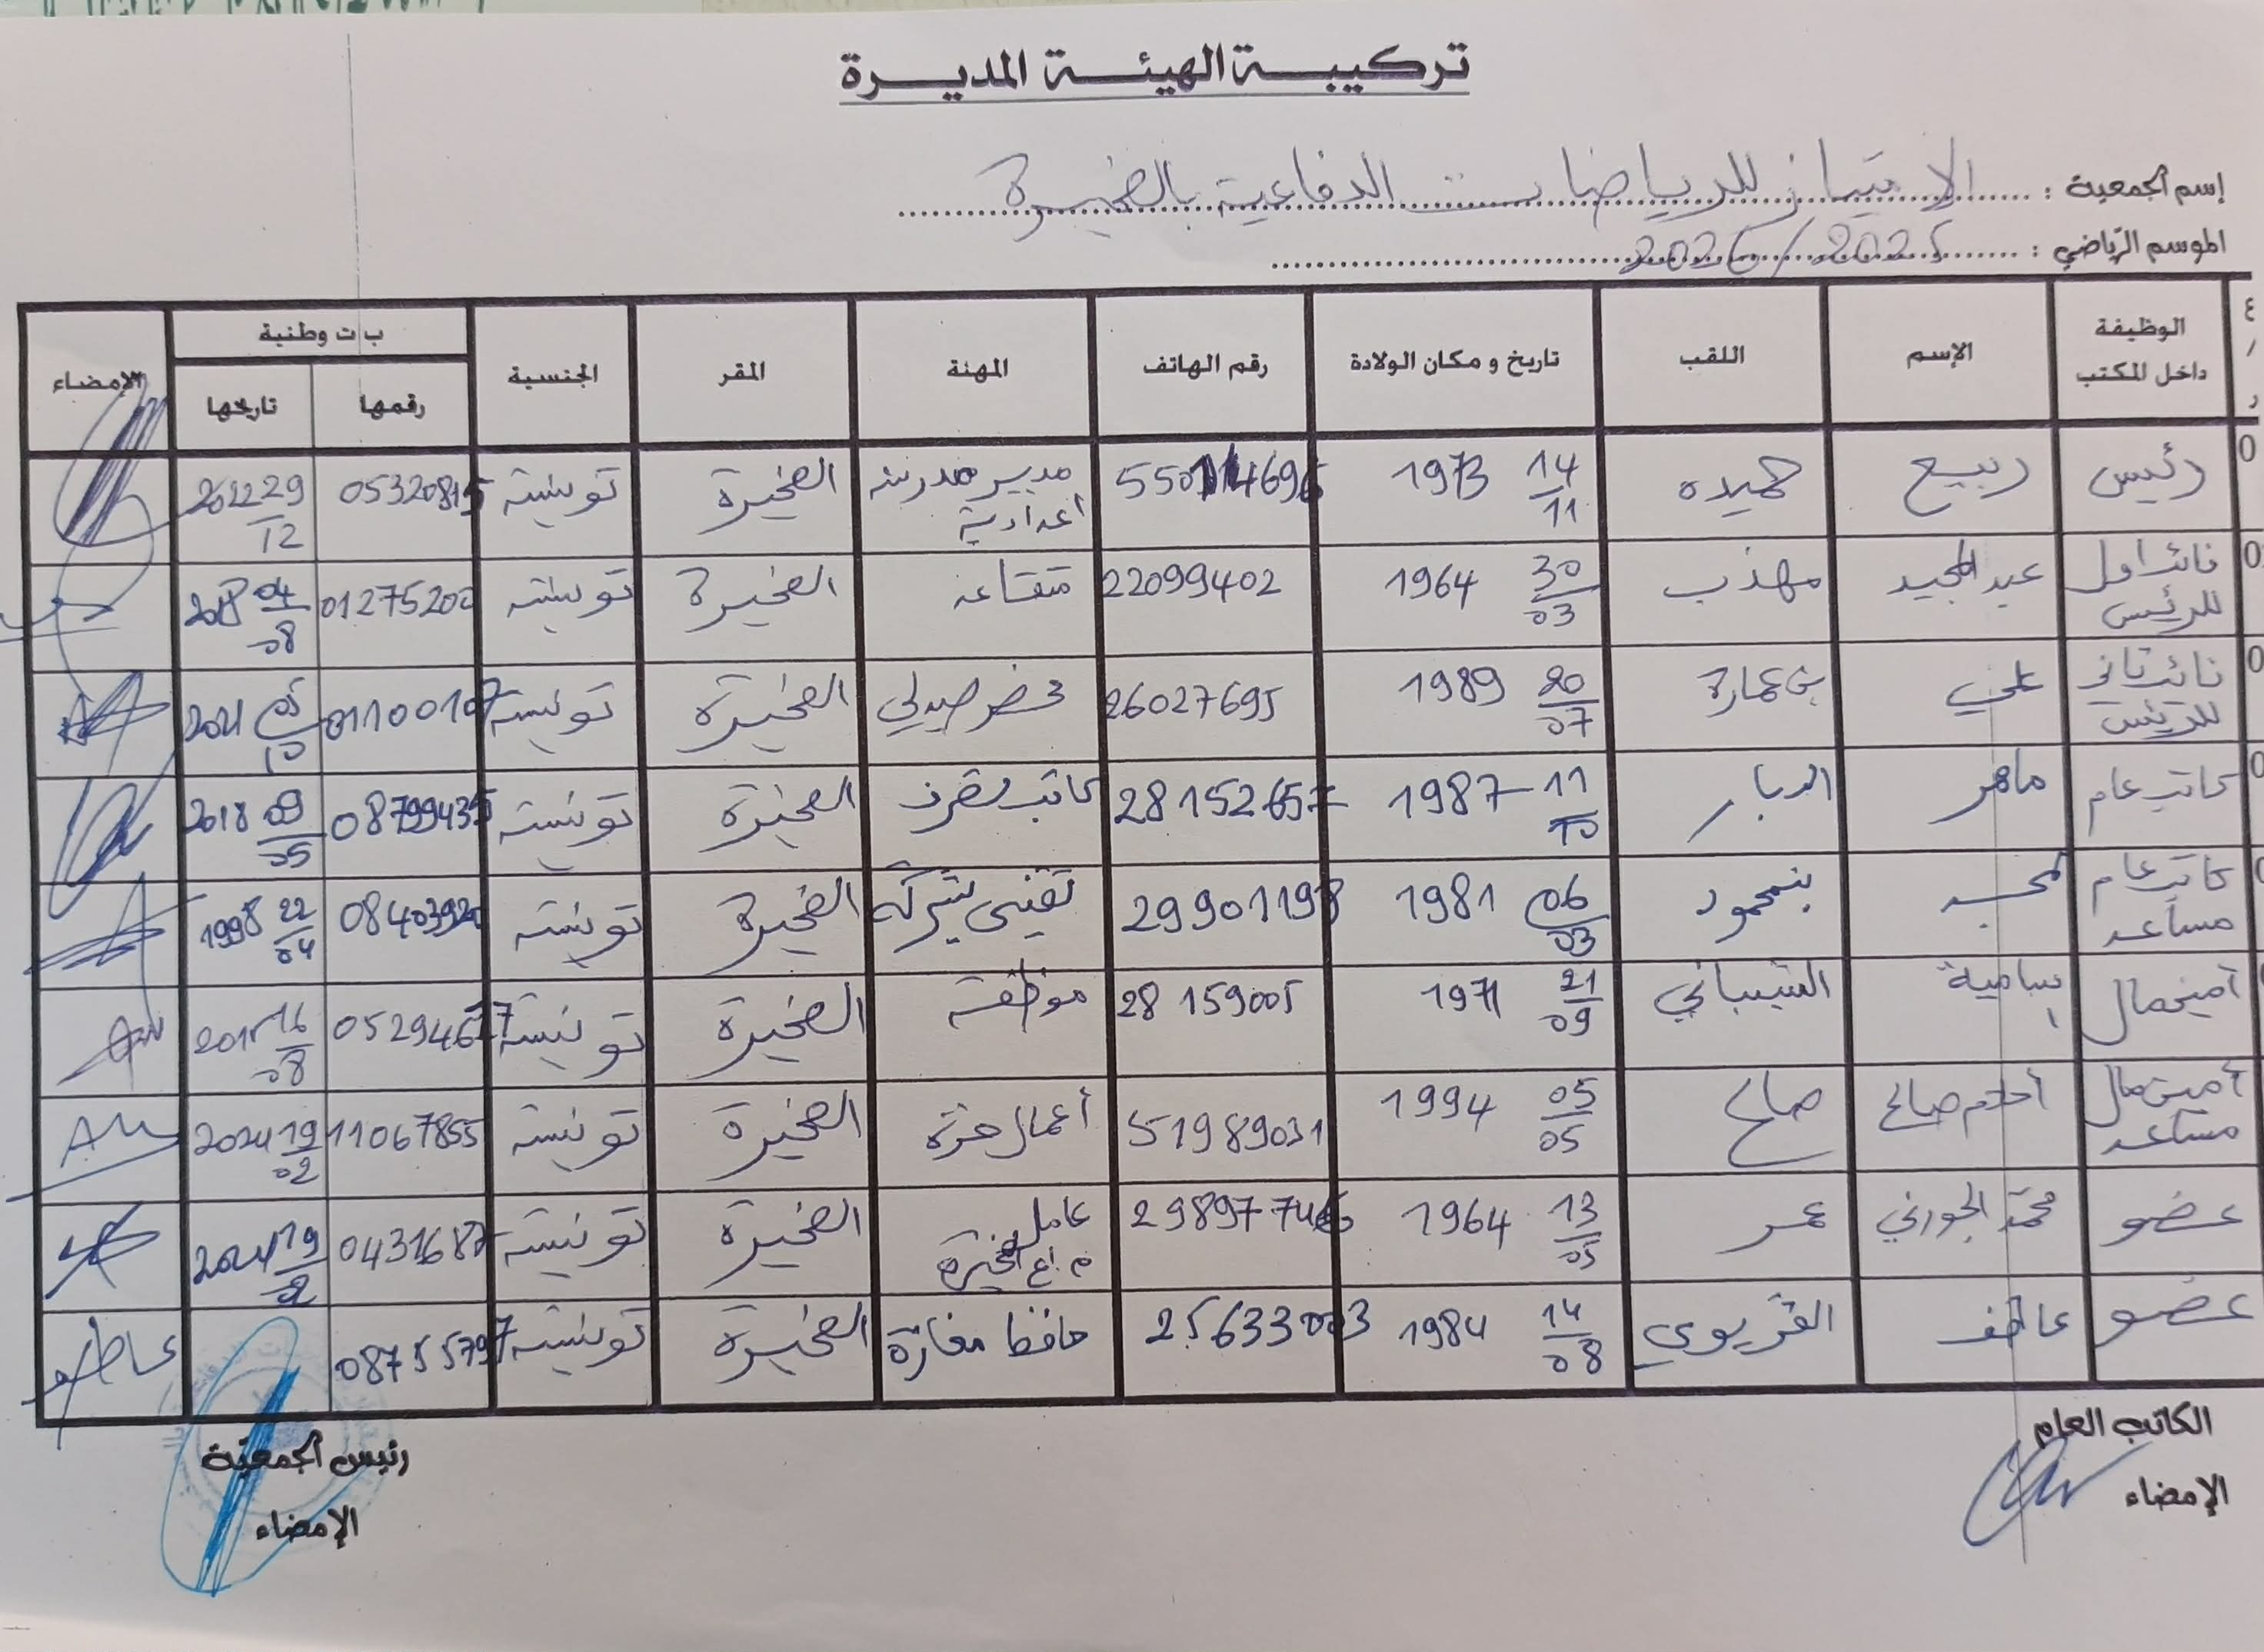 تركيبة الهيئة المديرة
إسم الجمعية : الإمتياز للرياضات الدفاعية بالصخيرة
الموسم الرياضي : 2025/2026
ع/ر الوظيفة داخل المكتب الإسم اللقب تاريخ و مكان الولادة رقم الهاتف المهنة المقر الجنسية ب ت وطنية رقمها تاريخها الإمضاء
رئيس ربيع حميده 14/11 1973 مدير مدرسة اعدادية الصخيرة تونسية 29/12
نائب اول للرئيس عبد المجيد مهذب 30/03 1964 22099402 متقاعد الصخيرة تونسية 04/08
نائب ثاني للرئيس علي بن عمارة 20/07 1989 26027695 محضر صيدلي الصخيرة تونسية 05/10 2021
كاتب عام ماهر الدبار 11/10 1987 28152657 كاتب تصرف الصخيرة تونسية 09/05 2018
كاتب عام مساعد محمد بنمحمود 06/03 1981 تقني بشركة الصخيرة تونسية 08403920 22/04 1998
أمين مال سامية الشيباني 21/09 1971 28159005 موظفة الصخيرة تونسية 16/08 2015
أمين مال مساعد أحلام صالح صالح 05/05 1994 51989031 أعمال حرة الصخيرة تونسية 11067855 19/02 2024
عضو محمد الجورني عمر 13/05 1964 عامل الصخيرة تونسية 19/02
عضو عاطف القريوي 14/08 1984 25633003 حافظ مغازة الصخيرة تونسية 08755797 عاطف
الكاتب العام
رئيس الجمعية
الإمضاء
الإمضاء